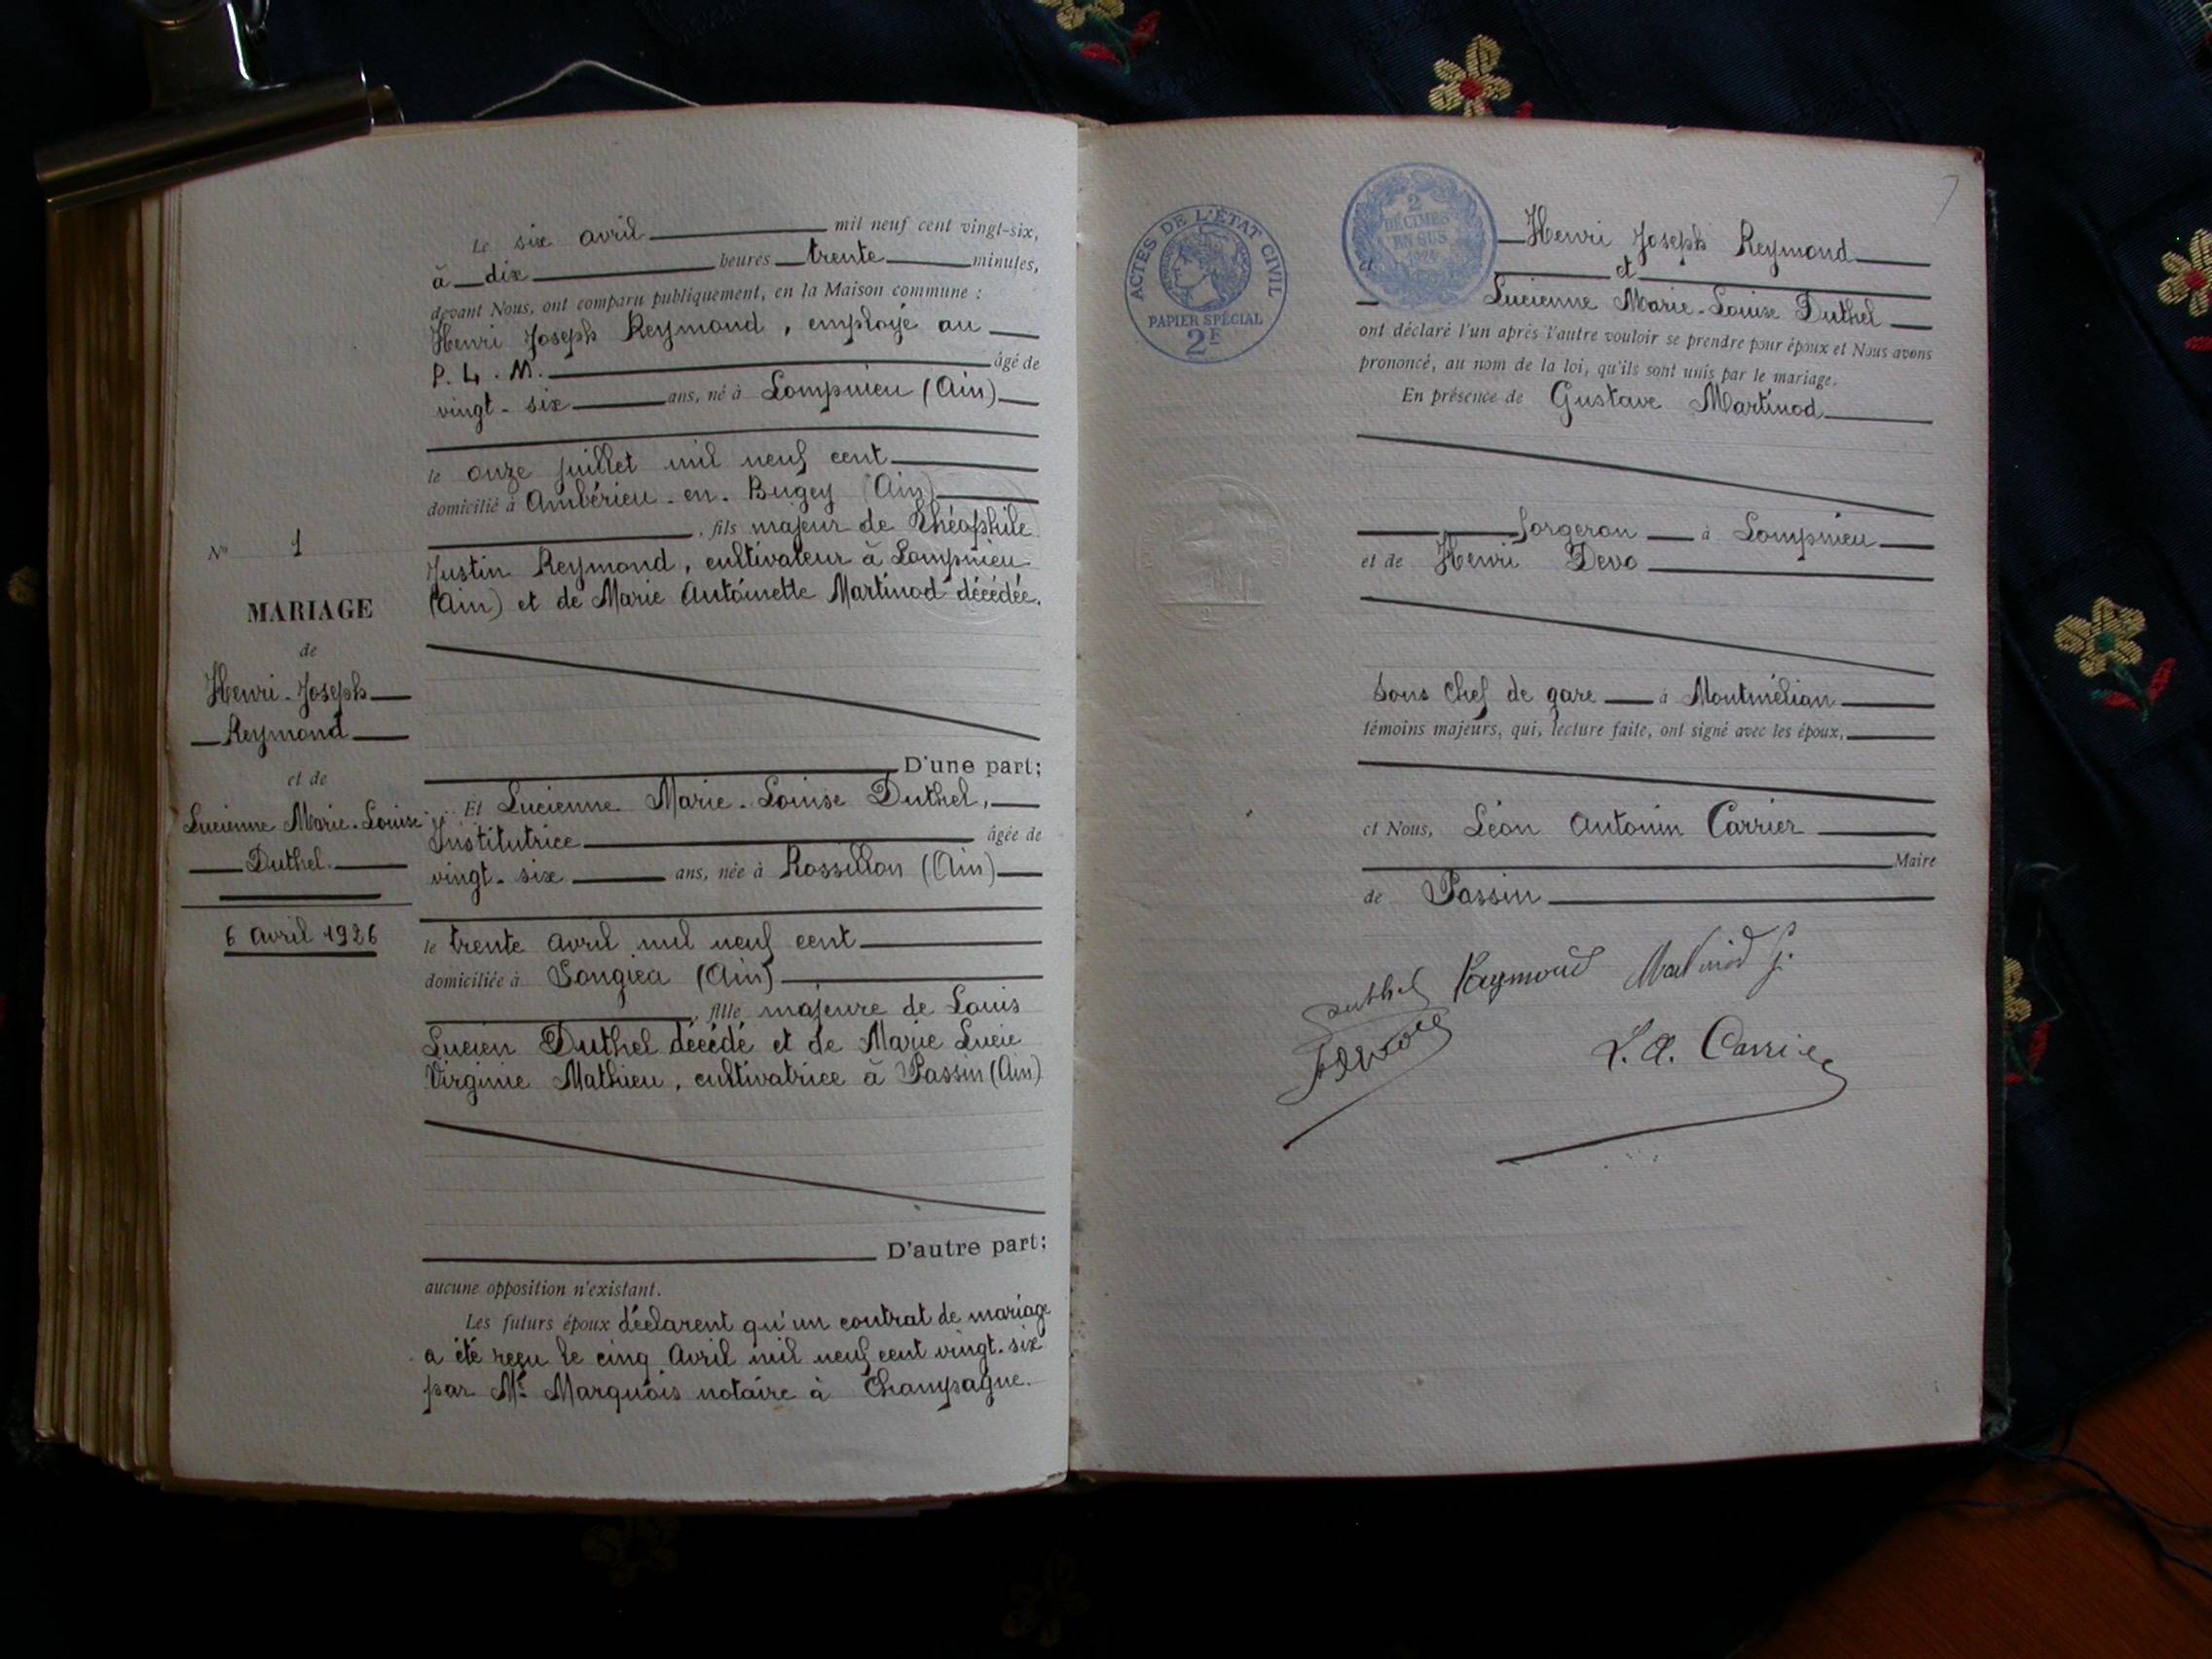 Le six avril mil neuf cent vingt-six,
à dix heures trente minutes,
devant Nous, ont comparu publiquement, en la Maison commune :
Henri Joseph Reymond, employé au
P. L. M. âgé de
vingt-six ans, né à Lompnieu (Ain)
le onze juillet mil neuf cent
domicilié à Ambérieu-en-Bugey (Ain)
, fils majeur de Théophile
Justin Reymond, cultivateur à Lompnieu
(Ain) et de Marie Antoinette Martinod décédée.
D'une part;
Et Lucienne Marie-Louise Duthel,
Institutrice âgée de
vingt-six ans, née à Rossillon (Ain)
le trente avril mil neuf cent
domiciliée à Songieu (Ain)
, fille majeure de Louis
Lucien Duthel décédé et de Marie Lucie
Virginie Mathieu, cultivatrice à Passin (Ain)
D'autre part;
aucune opposition n'existant.
Les futurs époux déclarent qu'un contrat de mariage
a été reçu le cinq Avril mil neuf cent vingt-six
par Me Marquois notaire à Champagne.
No 1
MARIAGE
de
Henri-Joseph
Reymond
et de
Lucienne Marie-Louise
Duthel.
6 avril 1926
ACTES DE L'ÉTAT CIVIL
PAPIER SPÉCIAL
2F
2
DÉCIMES
EN SUS
et Henri Joseph Reymond
et
Lucienne Marie-Louise Duthel
ont déclaré l'un après l'autre vouloir se prendre pour époux et Nous avons
prononcé, au nom de la loi, qu'ils sont unis par le mariage.
En présence de Gustave Martinod
forgeron à Lompnieu
et de Henri Devo
Sous Chef de gare à Montmélian
témoins majeurs, qui, lecture faite, ont signé avec les époux,
et Nous, Léon Antonin Carrier
Maire
de Passin
Duthel Reymond Martinod G.
L. A. Carrier